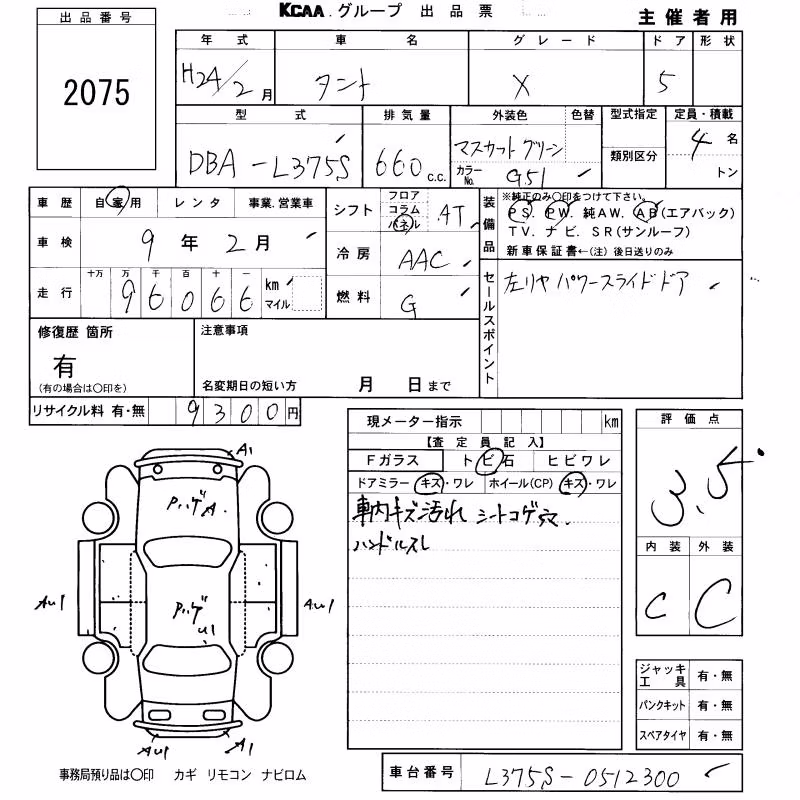 KCAA.グループ 出品票
主催者用
出品番号
2075
年式 車名 グレード ドア 形状
H24/2月 タント X 5
型式 排気量 外装色 色替 型式指定 定員・積載
DBA-L375S 660c.c. マスカットグリーン 類別区分 4名
カラーNo. G51 トン
車歴 自家用 レンタ 事業.営業車
シフト フロア コラム パネル AT
車検 9年2月
冷房 AAC
走行 十万 万 千 百 十 一
96066 km マイル
燃料 G
装備品
※純正のみ○印をつけて下さい。
PS. PW. 純AW. AB(エアバック)
TV. ナビ. SR(サンルーフ)
新車保証書←(注)後日送りのみ
セールスポイント
左リヤ パワースライドドア
修復歴 箇所
有
(有の場合は○印を)
注意事項
名変期日の短い方 月 日まで
リサイクル料 有・無 9300円
現メーター指示 km
【査定員記入】
Fガラス トビ石 ヒビワレ
ドアミラー キズ・ワレ ホイール(CP) キズ・ワレ
車内キズ汚れ シートコゲ穴.
ハンドルスレ
評価点
3.5
内装 外装
C C
ジャッキ工具 有・無
パンクキット 有・無
スペアタイヤ 有・無
A1
PハゲA.
AU1
Pハゲ
U1
AU1
AU1
A1
事務局預り品は○印 カギ リモコン ナビロム
車台番号 L375S-0512300